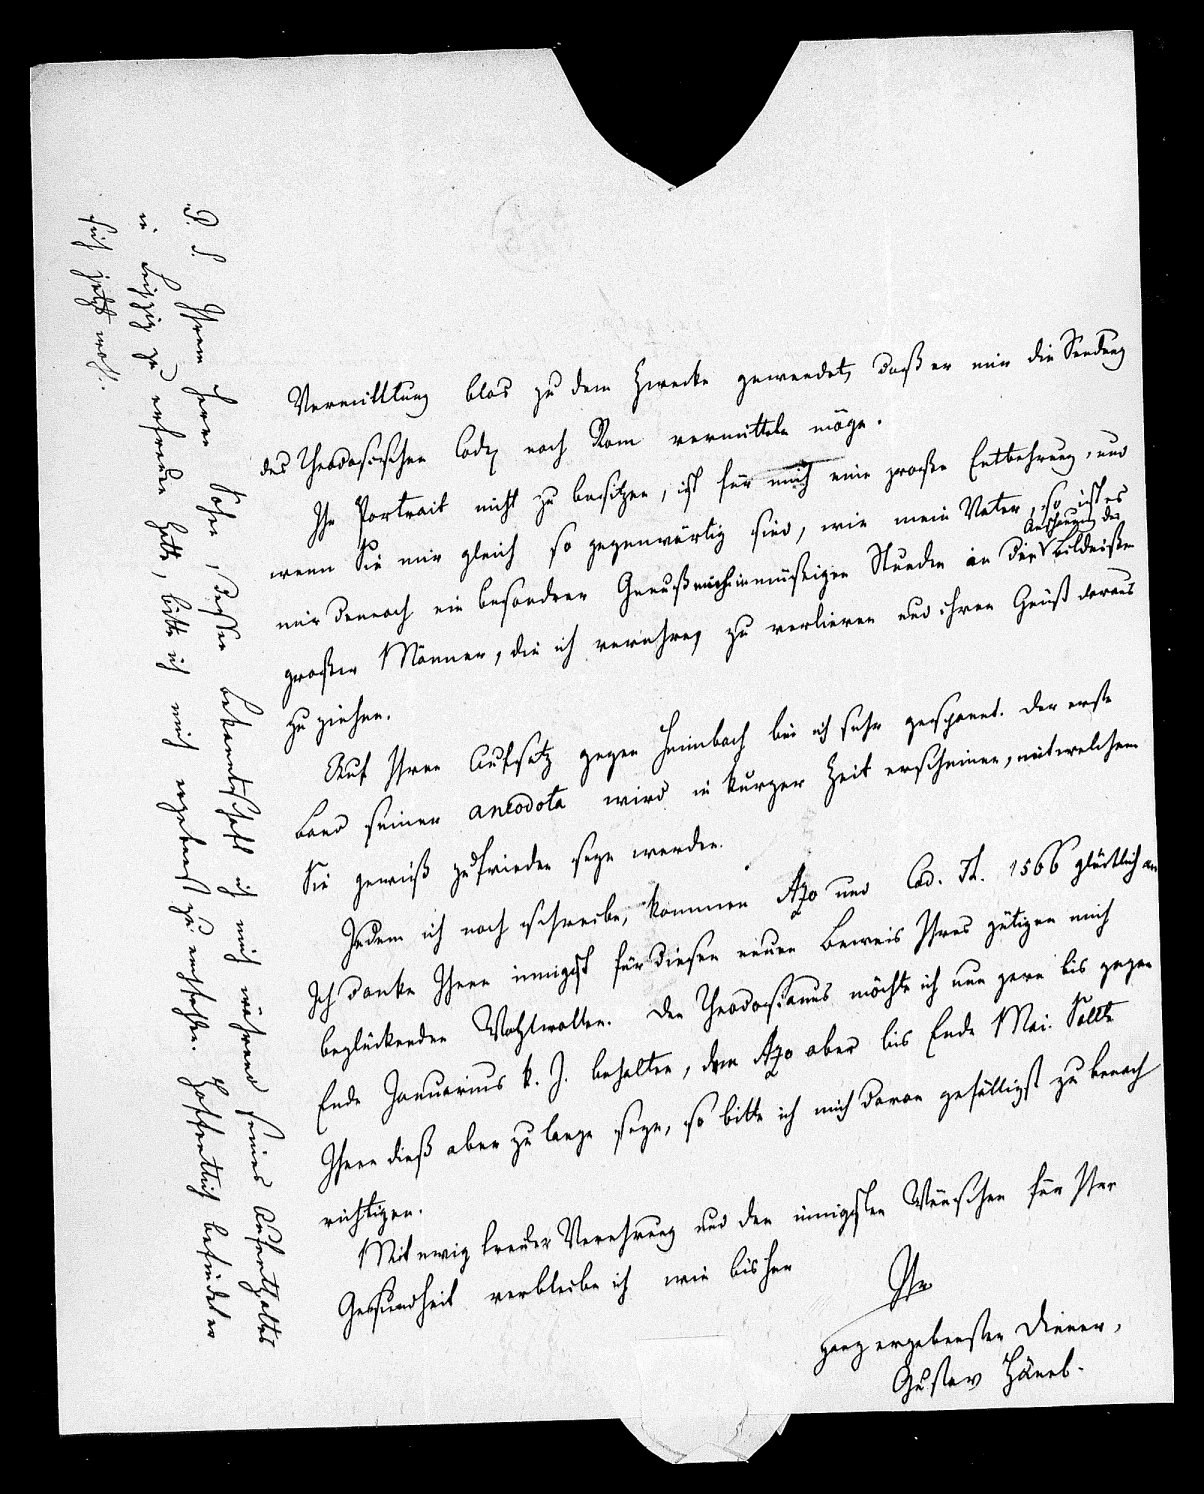 Vermittlung blos zu dem Zwecke gewendet, daß er mir die Sendung
des Theodosischen Codex nach Rom vermitteln möge.
Ihr Portrait nicht zu besitzen, ist für mich eine große Entbehrung, und
wenn Sie mir gleich so gegenwärtig sind, wie mein Vater, so ist es
mir dennoch ein besondrer Genuß mich in müßigen Stunden in der Anschauung der Bildniße
großer Männer, die ich verehre, zu verlieren und ihren Geist daraus
zu ziehen.
Auf Ihren Aufsatz gegen Heimbach bin ich sehr gespannt. Der erste
Band seiner anecdota wird in kurzer Zeit erscheinen, mit welchem
Sie gewiß zufrieden seyn werden.
Indem ich noch schreibe, kommen Azo und Cod. Th. 1566 glücklich an
Ich danke Ihnen innigst für diesen neuen Beweis Ihres gütigen mich
beglückenden Wohlwollen. Den Theodosianus möchte ich nun gern bis gegen
Ende Januarius k. J. behalten, den Azo aber bis Ende Mai. Sollte
Ihnen dieß aber zu lange seyn, so bitte ich mich davon gefälligst zu benach
richtigen.
Mit ewig treuer Verehrung und den innigsten Wünschen für Ihre
Gesundheit verbleibe ich wie bisher
Ihr
ganz ergebenster Diener,
Gustav Hänel.
P. S. Ihrem Herrn Sohn, dessen Bekanntschaft ich mich während seines Aufenthaltes
in Leipzig zu erfreuen hatte, bitte ich mich ergebenst zu empfehlen. Hoffentlich befindet er
sich jetzt wohl.